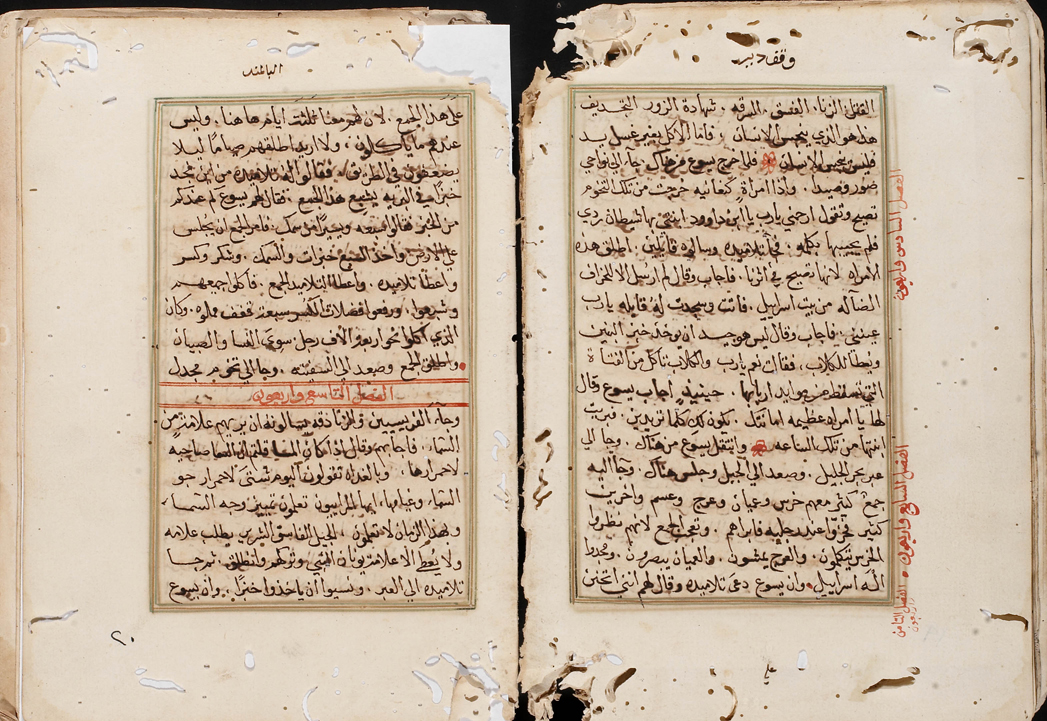 وقف دير
القتل الزنا. الفسق. السرقه. شهادة الزور التجديف
هذا هو الذي ينجس الانسان. فاما الاكل بغير غسل يد
فليس ينجس الانسان فلما خرج يسوع من هناك جا الي نواحي
صور وصيدا. واذا امراة كنعانيه خرجت من تلك التخوم
تصيح وتقول ارحمني يارب يا ابن داوود ابنتي بها شيطان ردي
فلم يجيبها بكلمه. فجا تلاميذه وسالوه قايلين. اطلق هذه
الامراه لانها تصيح في اثرنا. فاجاب وقال لم ارسل الا للخراف
الضاله من بيت اسراييل. فاتت وسجدت له قايله يارب
عينني. فاجاب وقال ليس هو جيد ان يوخذ خبز البنين
ويعطا للكلاب. فقالت نعم يارب والكلاب تاكل من الفتات
التي تسقط من موايد اربابها حينيذ اجاب يسوع وقال
لها يا امراه عظيمه امانتك. يكون لك كما تريدين. فبريت
ابنتها من تلك الساعه وانتقل يسوع من هناك. وجا الي
عبر بحر الجليل. وصعد الي الجبل وجلس هناك. وجا اليه
جمع كثير معهم خرس وعميان وعرج وعسم واخرين
كثير فخروا عند رجليه فابراهم. وتعجب الجمع لانهم نظروا
الخرس يتكلمون. والعرج يمشون. والعميان يبصرون. ومجدوا
اله اسراييل وان يسوع دعي تلاميذه وقال لهم انني اتحنن
الفصل السادس واربعون
الفصل السابع واربعون
الفصل الثامن واربعون
علي هذا الجمع. لان لهم معنا ثلثة ايام هاهنا. وليس
عندهم ما ياكلون. ولا اريد اطلقهم صياما ليلا
يضعفون في الطريق. فقالوا له تلاميذه من اين نجد
خبزا في البريه يشبع هذا الجمع. فقال لهم يسوع كم عندكم
من الخبز فقالوا سبعه ويسيرا من سمك. فامر الجمع ان يجلس
علي الارض واخذ السبع خبزات والسمك. وشكر وكسر
واعطا تلاميذه. واعطا التلاميذ الجمع. فاكلوا جميعهم
وشبعوا. ورفعوا فضلات الكسر سبعة قفف مملوه. وكان
الذي اكلوا نحو اربعة الاف رجل سوي النسا والصبيان
واطلق الجمع وصعد الي السفينه. وجا الي تخوم مجدل
الفصل التاسع واربعون
وجاء الفريسيين والزنادقه يسالونه ان يريهم علامة من
السماء. فاجابهم وقال اذا كان المسا قلتم ان السما صاحيه
لاحمرارها. وبالغداه تقولون اليوم شتي لاحمرار جو
السماء وعبامها. ايها المراييون تعلمون تمييز وجه السماء
وهذا الزمان لا تعلمون. الجيل الفاسق الشرير يطلب علامه
ولا يعطي الا علامة يونان النبي وتركهم وانطلق. ثم جا
تلاميذه الي العبر. ونسيوا ان ياخذوا خبزا. وان يسوع
٢٠